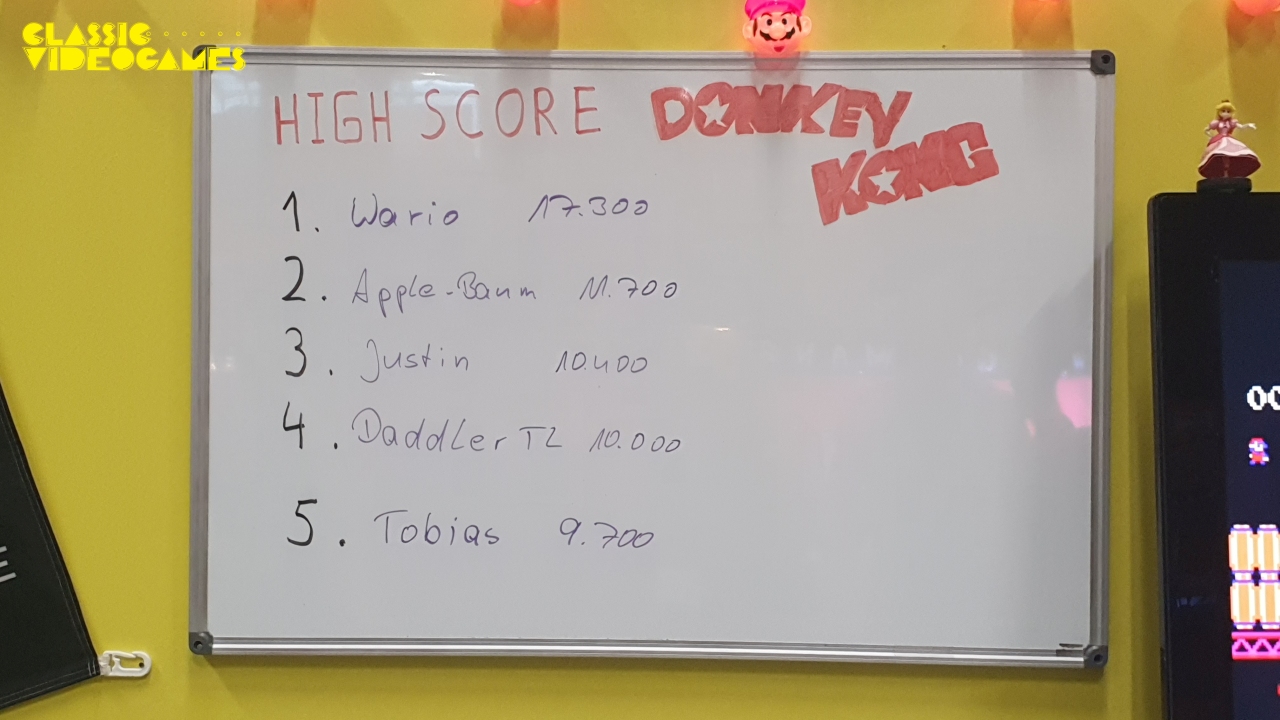 CLASSIC
VIDEOGAMES
HIGH SCORE DONKEY
KONG
1. Wario 17.300
2. Apple-Baum 11.700
3. Justin 10.400
4. Daddler TZ 10.000
5. Tobias 9.700
00
E